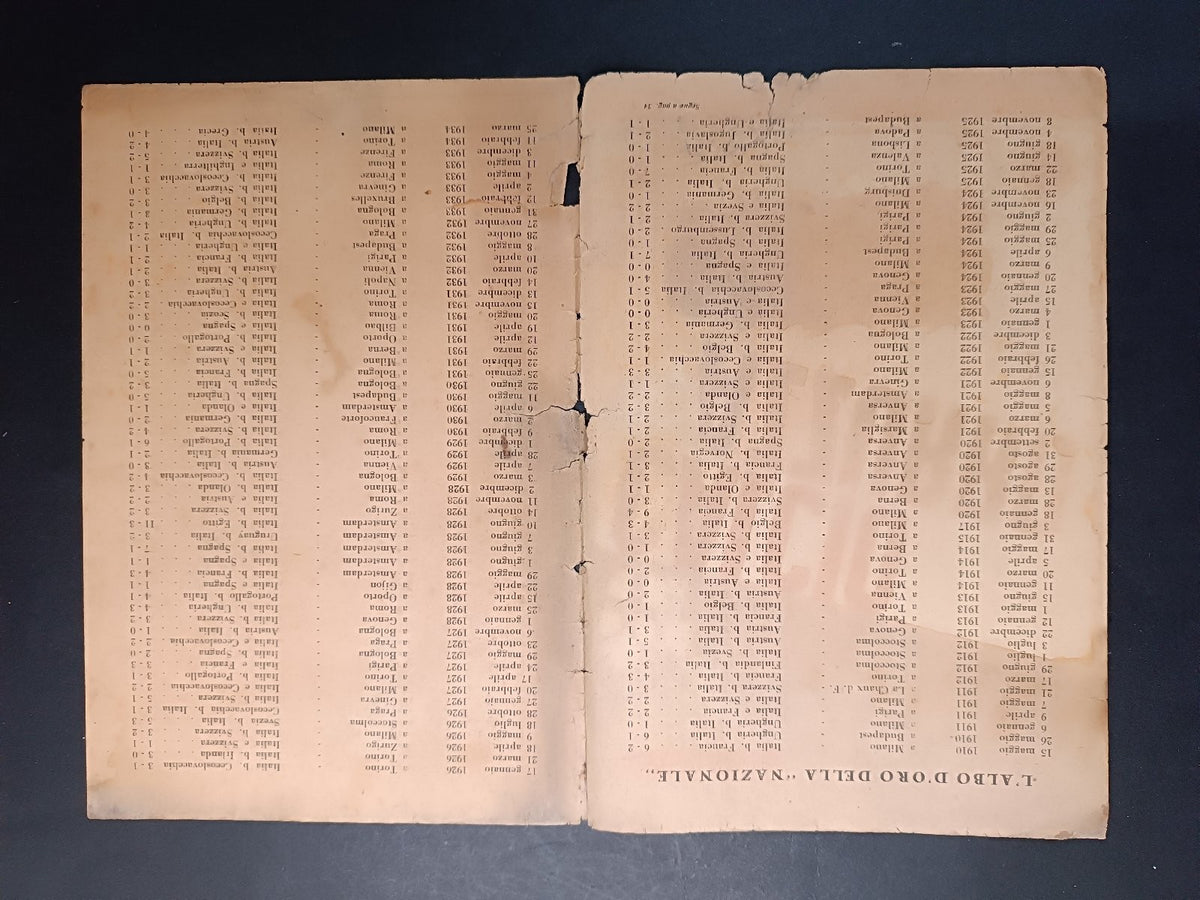 L'ALBO D'ORO DELLA "NAZIONALE"
15 maggio 1910 a Milano Italia b. Francia 6 - 2
26 maggio 1910 a Budapest Ungheria b. Italia 6 - 1
6 gennaio 1911 a Milano Ungheria b. Italia 1 - 0
9 aprile 1911 a Parigi Italia e Francia 2 - 2
7 maggio 1911 a Milano Italia e Svizzera 2 - 2
21 maggio 1911 a La Chaux d. F. Svizzera b. Italia 3 - 0
17 marzo 1912 a Torino Francia b. Italia 4 - 3
29 giugno 1912 a Stoccolma Finlandia b. Italia 3 - 2
1 luglio 1912 a Stoccolma Italia b. Svezia 1 - 0
3 luglio 1912 a Stoccolma Austria b. Italia 5 - 1
22 dicembre 1912 a Genova Austria b. Italia 3 - 1
12 gennaio 1913 a Parigi Francia b. Italia 1 - 0
1 maggio 1913 a Torino Italia b. Belgio 1 - 0
15 giugno 1913 a Vienna Austria b. Italia 2 - 0
11 gennaio 1914 a Milano Italia e Austria 0 - 0
20 marzo 1914 a Torino Italia b. Francia 2 - 0
5 aprile 1914 a Genova Italia e Svizzera 0 - 0
17 maggio 1914 a Berna Italia b. Svizzera 1 - 0
31 gennaio 1915 a Torino Italia b. Svizzera 3 - 1
3 giugno 1917 a Milano Belgio b. Italia 4 - 3
18 gennaio 1920 a Milano Italia b. Francia 9 - 4
28 marzo 1920 a Berna Svizzera b. Italia 3 - 0
13 maggio 1920 a Genova Italia e Olanda 1 - 1
28 agosto 1920 a Anversa Italia b. Egitto 2 - 1
29 agosto 1920 a Anversa Francia b. Italia 3 - 1
31 agosto 1920 a Anversa Italia b. Norvegia 2 - 1
2 settembre 1920 a Anversa Spagna b. Italia 2 - 0
20 febbraio 1921 a Marsiglia Italia b. Francia 2 - 1
6 marzo 1921 a Milano Italia b. Svizzera 2 - 1
5 maggio 1921 a Anversa Italia b. Belgio 3 - 2
8 maggio 1921 a Amsterdam Italia e Olanda 2 - 2
6 novembre 1921 a Ginevra Italia e Svizzera 1 - 1
15 gennaio 1922 a Milano Italia e Austria 3 - 3
26 febbraio 1922 a Torino Italia e Cecoslovacchia 1 - 1
21 maggio 1922 a Milano Italia b. Belgio 4 - 2
3 dicembre 1922 a Bologna Italia e Svizzera 2 - 2
1 gennaio 1923 a Milano Italia b. Germania 3 - 1
4 marzo 1923 a Genova Italia e Ungheria 0 - 0
15 aprile 1923 a Vienna Italia e Austria 0 - 0
27 maggio 1923 a Praga Cecoslovacchia b. Italia 5 - 1
20 gennaio 1924 a Genova Austria b. Italia 4 - 0
9 marzo 1924 a Milano Italia e Spagna 0 - 0
6 aprile 1924 a Budapest Ungheria b. Italia 7 - 1
25 maggio 1924 a Parigi Italia b. Spagna 1 - 0
29 maggio 1924 a Parigi Italia b. Lussemburgo 2 - 0
2 giugno 1924 a Parigi Svizzera b. Italia 2 - 1
16 novembre 1924 a Milano Italia e Svezia 2 - 2
23 novembre 1924 a Duisburg Italia b. Germania 1 - 0
18 gennaio 1925 a Milano Ungheria b. Italia 2 - 1
22 marzo 1925 a Torino Italia b. Francia 7 - 0
14 giugno 1925 a Valenza Spagna b. Italia 1 - 0
18 giugno 1925 a Lisbona Portogallo b. Italia 1 - 0
4 novembre 1925 a Padova Italia b. Jugoslavia 2 - 1
8 novembre 1925 a Budapest Italia e Ungheria 1 - 1
Segue a pag. 14
17 gennaio 1926 a Torino Italia b. Cecoslovacchia 3 - 1
21 marzo 1926 a Torino Italia b. Irlanda 3 - 0
18 aprile 1926 a Zurigo Italia e Svizzera 1 - 1
9 maggio 1926 a Milano Italia b. Svizzera 3 - 2
18 luglio 1926 a Stoccolma Svezia b. Italia 5 - 3
28 ottobre 1926 a Praga Cecoslovacchia b. Italia 3 - 1
27 gennaio 1927 a Ginevra Italia b. Svizzera 5 - 1
20 febbraio 1927 a Milano Italia e Cecoslovacchia 2 - 2
17 aprile 1927 a Torino Italia b. Portogallo 3 - 1
24 aprile 1927 a Parigi Italia e Francia 3 - 3
29 maggio 1927 a Bologna Italia b. Spagna 2 - 0
23 ottobre 1927 a Praga Italia e Cecoslovacchia 2 - 2
6 novembre 1927 a Bologna Austria b. Italia 1 - 0
1 gennaio 1928 a Genova Italia b. Svizzera 3 - 2
25 marzo 1928 a Roma Italia b. Ungheria 4 - 3
15 aprile 1928 a Oporto Portogallo b. Italia 4 - 1
22 aprile 1928 a Gijon Italia e Spagna 1 - 1
29 maggio 1928 a Amsterdam Italia b. Francia 4 - 3
1 giugno 1928 a Amsterdam Italia e Spagna 1 - 1
3 giugno 1928 a Amsterdam Italia b. Spagna 7 - 1
7 giugno 1928 a Amsterdam Uruguay b. Italia 3 - 2
10 giugno 1928 a Amsterdam Italia b. Egitto 11 - 3
14 ottobre 1928 a Zurigo Italia b. Svizzera 3 - 2
11 novembre 1928 a Roma Italia e Austria 2 - 2
2 dicembre 1928 a Milano Italia b. Olanda 3 - 2
3 marzo 1929 a Bologna Italia b. Cecoslovacchia 4 - 2
7 aprile 1929 a Vienna Austria b. Italia 3 - 0
28 aprile 1929 a Torino Germania b. Italia 2 - 1
1 dicembre 1929 a Milano Italia b. Portogallo 6 - 1
9 febbraio 1930 a Roma Italia b. Svizzera 4 - 2
2 marzo 1930 a Francoforte Italia b. Germania 2 - 0
6 aprile 1930 a Amsterdam Italia e Olanda 1 - 1
11 maggio 1930 a Budapest Italia b. Ungheria 5 - 0
22 giugno 1930 a Bologna Spagna b. Italia 3 - 2
25 gennaio 1931 a Bologna Italia b. Francia 5 - 0
22 febbraio 1931 a Milano Italia b. Austria 2 - 1
29 marzo 1931 a Berna Italia e Svizzera 1 - 1
12 aprile 1931 a Oporto Italia b. Portogallo 2 - 0
19 aprile 1931 a Bilbao Italia e Spagna 0 - 0
20 maggio 1931 a Roma Italia b. Scozia 3 - 0
15 novembre 1931 a Roma Italia e Cecoslovacchia 2 - 2
13 dicembre 1931 a Torino Italia b. Ungheria 3 - 2
14 febbraio 1932 a Napoli Italia b. Svizzera 3 - 0
20 marzo 1932 a Vienna Austria b. Italia 2 - 1
10 aprile 1932 a Parigi Italia b. Francia 2 - 1
8 maggio 1932 a Budapest Italia e Ungheria 1 - 1
28 ottobre 1932 a Praga Cecoslovacchia b. Italia 2 - 1
27 novembre 1932 a Milano Italia b. Ungheria 4 - 2
31 gennaio 1933 a Bologna Italia b. Germania 3 - 1
12 febbraio 1933 a Bruxelles Italia b. Belgio 3 - 2
2 aprile 1933 a Ginevra Italia b. Svizzera 3 - 0
4 maggio 1933 a Firenze Italia b. Cecoslovacchia 3 - 1
11 maggio 1933 a Roma Italia e Inghilterra 1 - 1
3 dicembre 1933 a Firenze Italia b. Svizzera 5 - 2
11 febbraio 1934 a Torino Austria b. Italia 4 - 2
25 marzo 1934 a Milano Italia b. Grecia 4 - 0